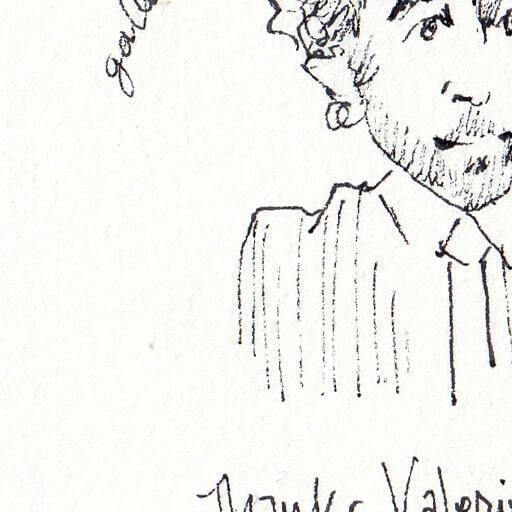 gal
Thanks Valeri